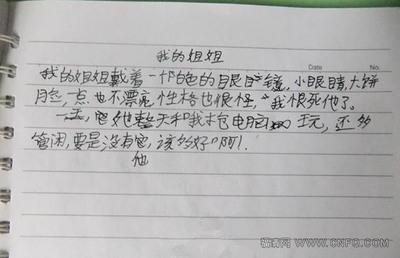 我的姐姐
Date No.
我的姐姐戴着一个白色的目艮目竟,小眼睛,大饼
月色,一点也不漂亮,性格也很怪,我恨死他了。
一天,她整天和我抢电脑玩,还多
管闲,要是没有它,该多好啊!
他
猫扑网 WWW.CNFG.COM